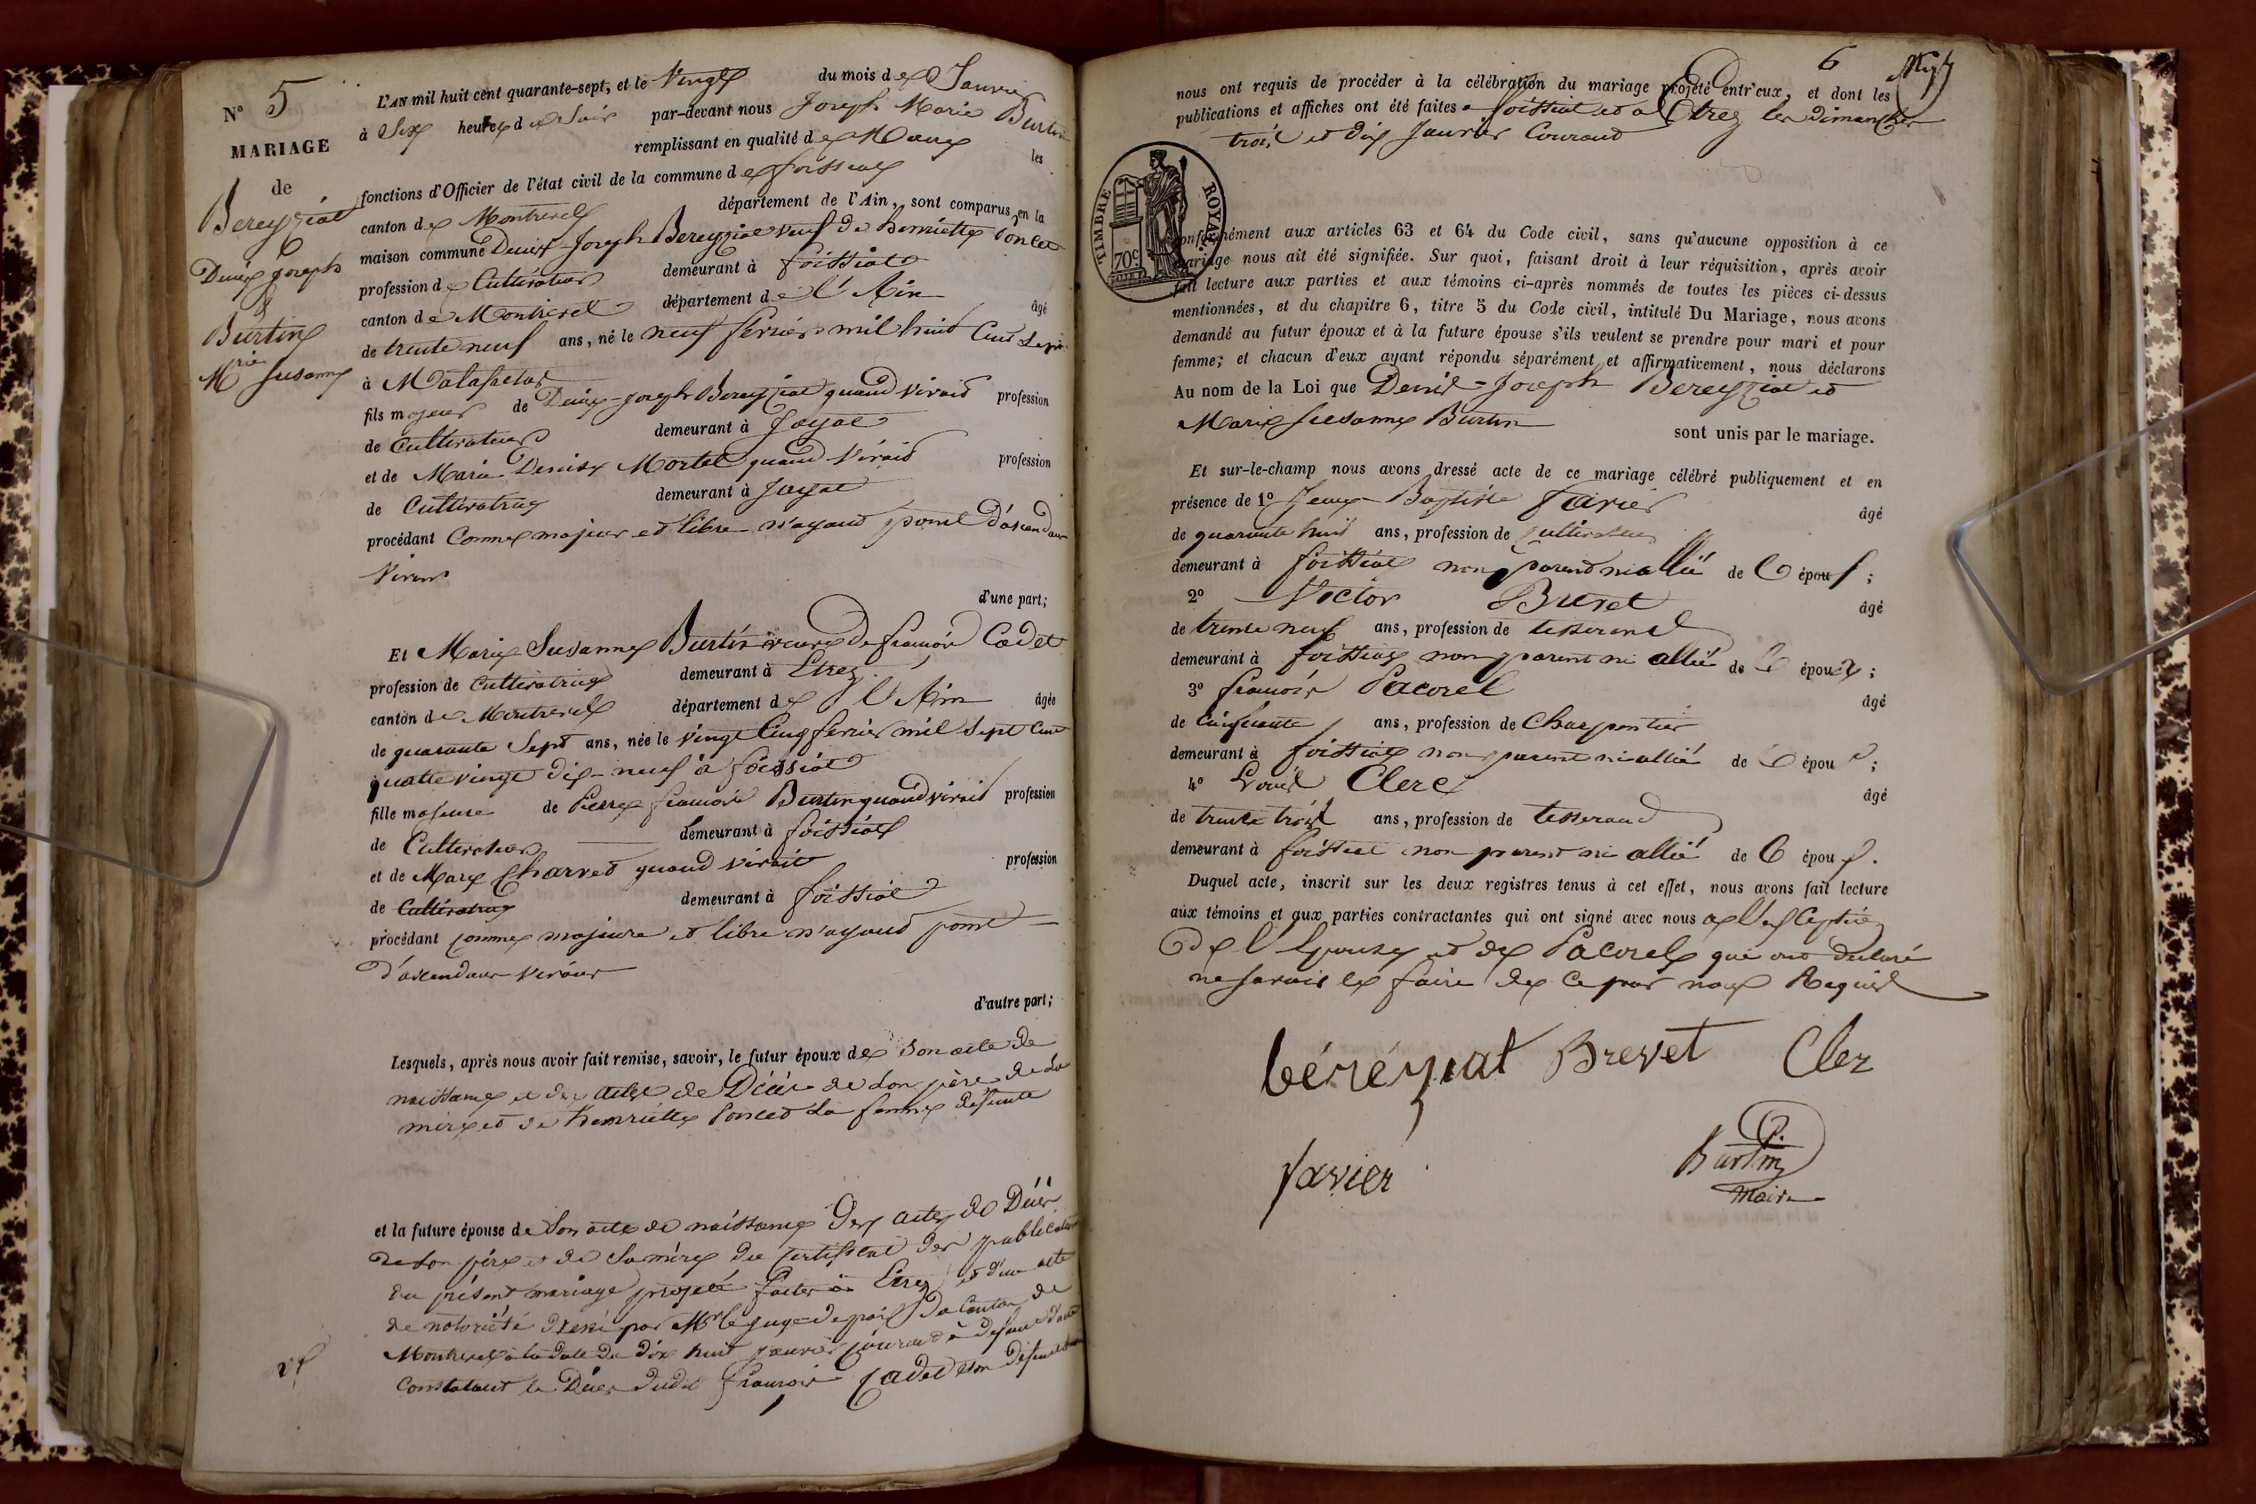 N° 5
MARIAGE
de
Bereyziat
Denis joseph
&
Burtin
Mrie susanne
L'AN mil huit cent quarante-sept, et le Vingt du mois de Janvier
à Six heures du Soir par-devant nous Joseph Marie Burtin
remplissant en qualité de Maire les
fonctions d'Officier de l'état civil de la commune de foissiat
canton de Montrevel département de l'Ain, sont comparus, en la
maison commune Denis-Joseph Bereyziat veuf de henriette Poncet
profession de Cultivateur demeurant à foissiat
canton de Montrevel département de l'Ain âgé
de trente neuf ans, né le neuf fevrier mil huit Cent
à Malafretaz
fils majeur de Denis-joseph Bereyziat quand vivait profession
de Cultivateur demeurant à Jayat
et de Marie Denise Mortel quand vivait profession
de Cultivatrice demeurant à Jayat
procédant Comme majeur et libre n'ayant point d'ascendans
Vivans
d'une part;
Et Marie Susanne Burtin veuve de françois Cadet
profession de Cultivatrice demeurant à Etrez
canton de Montrevel département de l'Ain âgée
de quarante Sept ans, née le vingt Cinq fevrier mil Sept Cent
quatre vingt dix-neuf à foissiat
fille majeure de Pierre françois Burtin quand vivait profession
de Cultivateur demeurant à foissiat
et de Marie Charvet quand vivait profession
de Cultivatrice demeurant à foissiat
procédant comme majeure et libre n'ayant point
d'ascendans vivans
d'autre part;
Lesquels, après nous avoir fait remise, savoir, le futur époux de son acte de
naissance et des actes de Décès de son père de sa
mère et de henriette Poncet sa femme défunte
et la future épouse de son acte de naissance des actes de Décès
de son père et de sa mère du certificat des publications
du présent mariage projeté faites à Etrez et d'un acte
de notoriété dressé par Mr le juge de paix du Canton de
Montrevel à la date du dix huit janvier courant à defaut d'acte
constatant le Décès dudit françois Cadet son défunt
6
nous ont requis de procéder à la célébration du mariage projeté entr'eux, et dont les
publications et affiches ont été faites a foissiat et a Etrez les dimanches
trois et dix Janvier Courant
TIMBRE ROYAL
70c
conformément aux articles 63 et 64 du Code civil, sans qu'aucune opposition à ce
mariage nous ait été signifiée. Sur quoi, faisant droit à leur réquisition, après avoir
fait lecture aux parties et aux témoins ci-après nommés de toutes les pièces ci-dessus
mentionnées, et du chapitre 6, titre 5 du Code civil, intitulé Du Mariage, nous avons
demandé au futur époux et à la future épouse s'ils veulent se prendre pour mari et pour
femme; et chacun d'eux ayant répondu séparément et affirmativement, nous déclarons
Au nom de la Loi que Denis-Joseph Bereyziat et
Marie Suesanne Burtin
sont unis par le mariage.
Et sur-le-champ nous avons dressé acte de ce mariage célébré publiquement et en
présence de 1° Jean Baptiste Favier âgé
de quarante huit ans, profession de cultivateur
demeurant à foissiat non parent ni allié de l'époux;
2° Victor Brevet âgé
de trente neuf ans, profession de tisserand
demeurant à foissiat non parent ni allié de l'époux;
3° françois Pacorel âgé
de Cinquante ans, profession de Charpentier
demeurant à foissiat non parent ni allié de l'époux;
4° Louis Clerc âgé
de trente trois ans, profession de tisserand
demeurant à foissiat non parent ni allié de l'époux.
Duquel acte, inscrit sur les deux registres tenus à cet effet, nous avons fait lecture
aux témoins et aux parties contractantes qui ont signé avec nous a l'exception
de l'Epouse et de Pacorel qui ont declaré
ne savoir le faire de ce par nous Requis
béréyziat Brevet Clerc
favier
Burtin
Maire